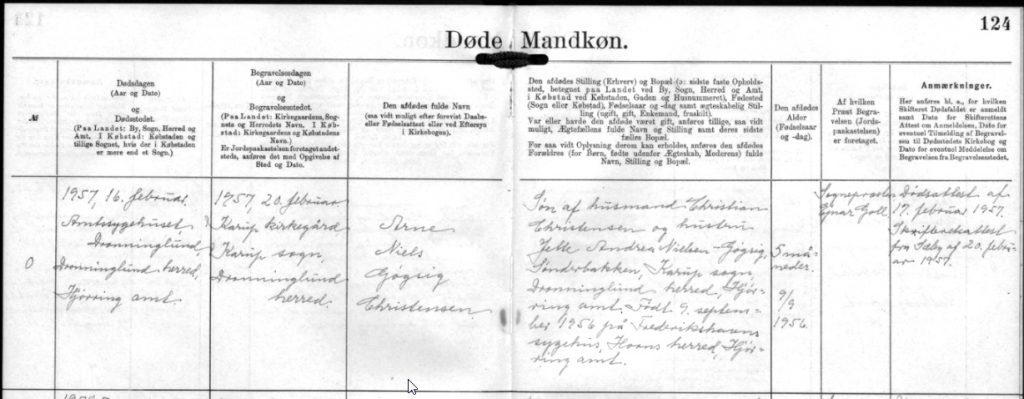 124
Døde Mandkøn.
№
Dødsdagen
(Aar og Dato)
og
Dødsstedet.
(Paa Landet: By, Sogn, Herred og
Amt. I Købstad: Købstaden og
tillige Sognet, hvis der i Købstaden
er mere end et Sogn.)
Begravelsesdagen
(Aar og Dato)
og
Begravelsesstedet.
(Paa Landet: Kirkegaardens, Sog-
nets og Herredets Navn. I Køb-
stad: Kirkegaardens og Købstadens
Navn.)
Er Jordspaakastelsen foretaget andet-
steds, anføres det med Opgivelse af
Sted og Dato.
Den afdødes fulde Navn
(saa vidt muligt efter forevist Daabs-
eller Fødselsattest eller ved Eftersyn
i Kirkebogen).
Den afdødes Stilling (Erhverv) og Bopæl (ɔ: sidste faste Opholds-
sted, betegnet paa Landet ved By, Sogn, Herred og Amt,
i Købstad ved Købstaden, Gaden og Husnummeret), Fødested
(Sogn eller Købstad), Fødselsaar og -dag samt ægteskabelig Stil-
ling (ugift, gift, Enkemand, fraskilt).
Var eller havde den afdøde været gift, anføres tillige, saa vidt
muligt, Ægtefællens fulde Navn og Stilling samt deres sidste
fælles Bopæl.
For saa vidt Oplysning derom kan erholdes, anføres den afdødes
Forældres (for Børn, fødte udenfor Ægteskab, Moderens) fulde
Navn, Stilling og Bopæl.
Den afdødes
Alder
(Fødselsaar
og -dag).
Af hvilken
Præst Begra-
velsen (Jords-
paakastelsen)
er foretaget.
Anmærkninger.
Her anføres bl. a., for hvilken
Skifteret Dødsfaldet er anmeldt
samt Dato for Skifterettens
Attest om Anmeldelsen, Dato for
eventuel Tilmelding af Begravel-
sen til Dødsstedets Kirkebog og
Dato for eventuel Meddelelse om
Begravelsen fra Begravelsesstedet.
0
1957, 16. februar.
Amtssygehuset
Dronninglund,
Dronninglund herred,
Hjørring amt.
1957, 20. februar
Karup kirkegård
Karup sogn,
Dronninglund
herred.
Arne
Niels
Gøgsig
Christensen
Søn af husmand Christian
Christensen og hustru
Jytte Andrea Nielsen Gøgsig,
Sønderbakken, Karup sogn,
Dronninglund herred, Hjør-
ring amt. Født 9. septem-
ber 1956 på Frederikshavns
sygehus, Horns herred, Hjør-
ring amt.
5 må-
neder.
9/9
1956.
Sognepræsten
Ejnar Goll
Dødsattest af
17. februar 1957.
Skifteretsattest
fra Sæby af 20. febru-
ar 1957.